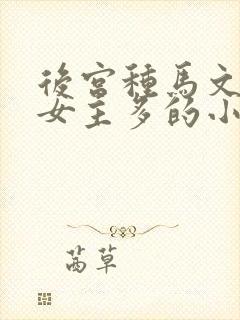 後宮種馬文
女主多的小
茜草